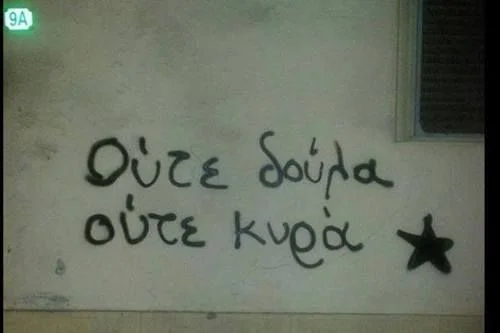 9A
Ούτε δούλα
ούτε κυρά